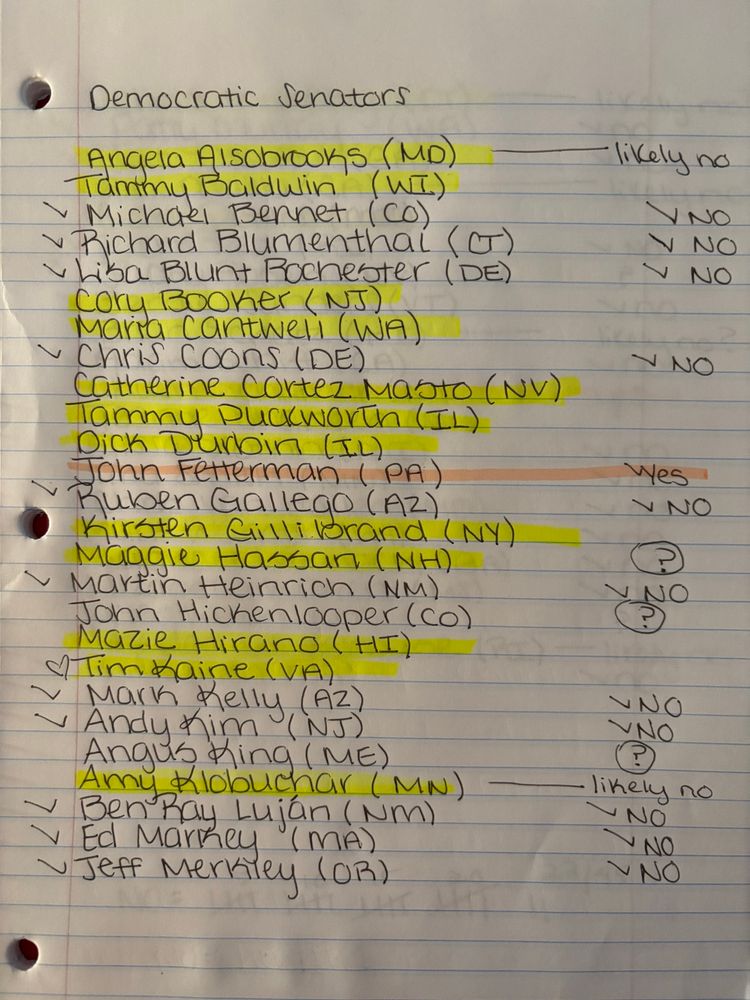 Democratic Senators
Angela Alsobrooks (MD) — likely no
Tammy Baldwin (WI)
✓ Michael Bennet (CO) ✓ NO
✓ Richard Blumenthal (CT) ✓ NO
✓ Lisa Blunt Rochester (DE) ✓ NO
Cory Booker (NJ)
Maria Cantwell (WA)
✓ Chris Coons (DE) ✓ NO
Catherine Cortez Masto (NV)
Tammy Duckworth (IL)
Dick Durbin (IL)
John Fetterman (PA) Yes
✓ Ruben Gallego (AZ) ✓ NO
Kirsten Gillibrand (NY)
Maggie Hassan (NH) ?
✓ Martin Heinrich (NM) ✓ NO
John Hickenlooper (CO) ?
Mazie Hirano (HI)
♡ Tim Kaine (VA)
✓ Mark Kelly (AZ) ✓ NO
✓ Andy Kim (NJ) ✓ NO
Angus King (ME) ?
Amy Klobuchar (MN) — likely no
✓ Ben Ray Luján (NM) ✓ NO
✓ Ed Markey (MA) ✓ NO
✓ Jeff Merkley (OR) ✓ NO